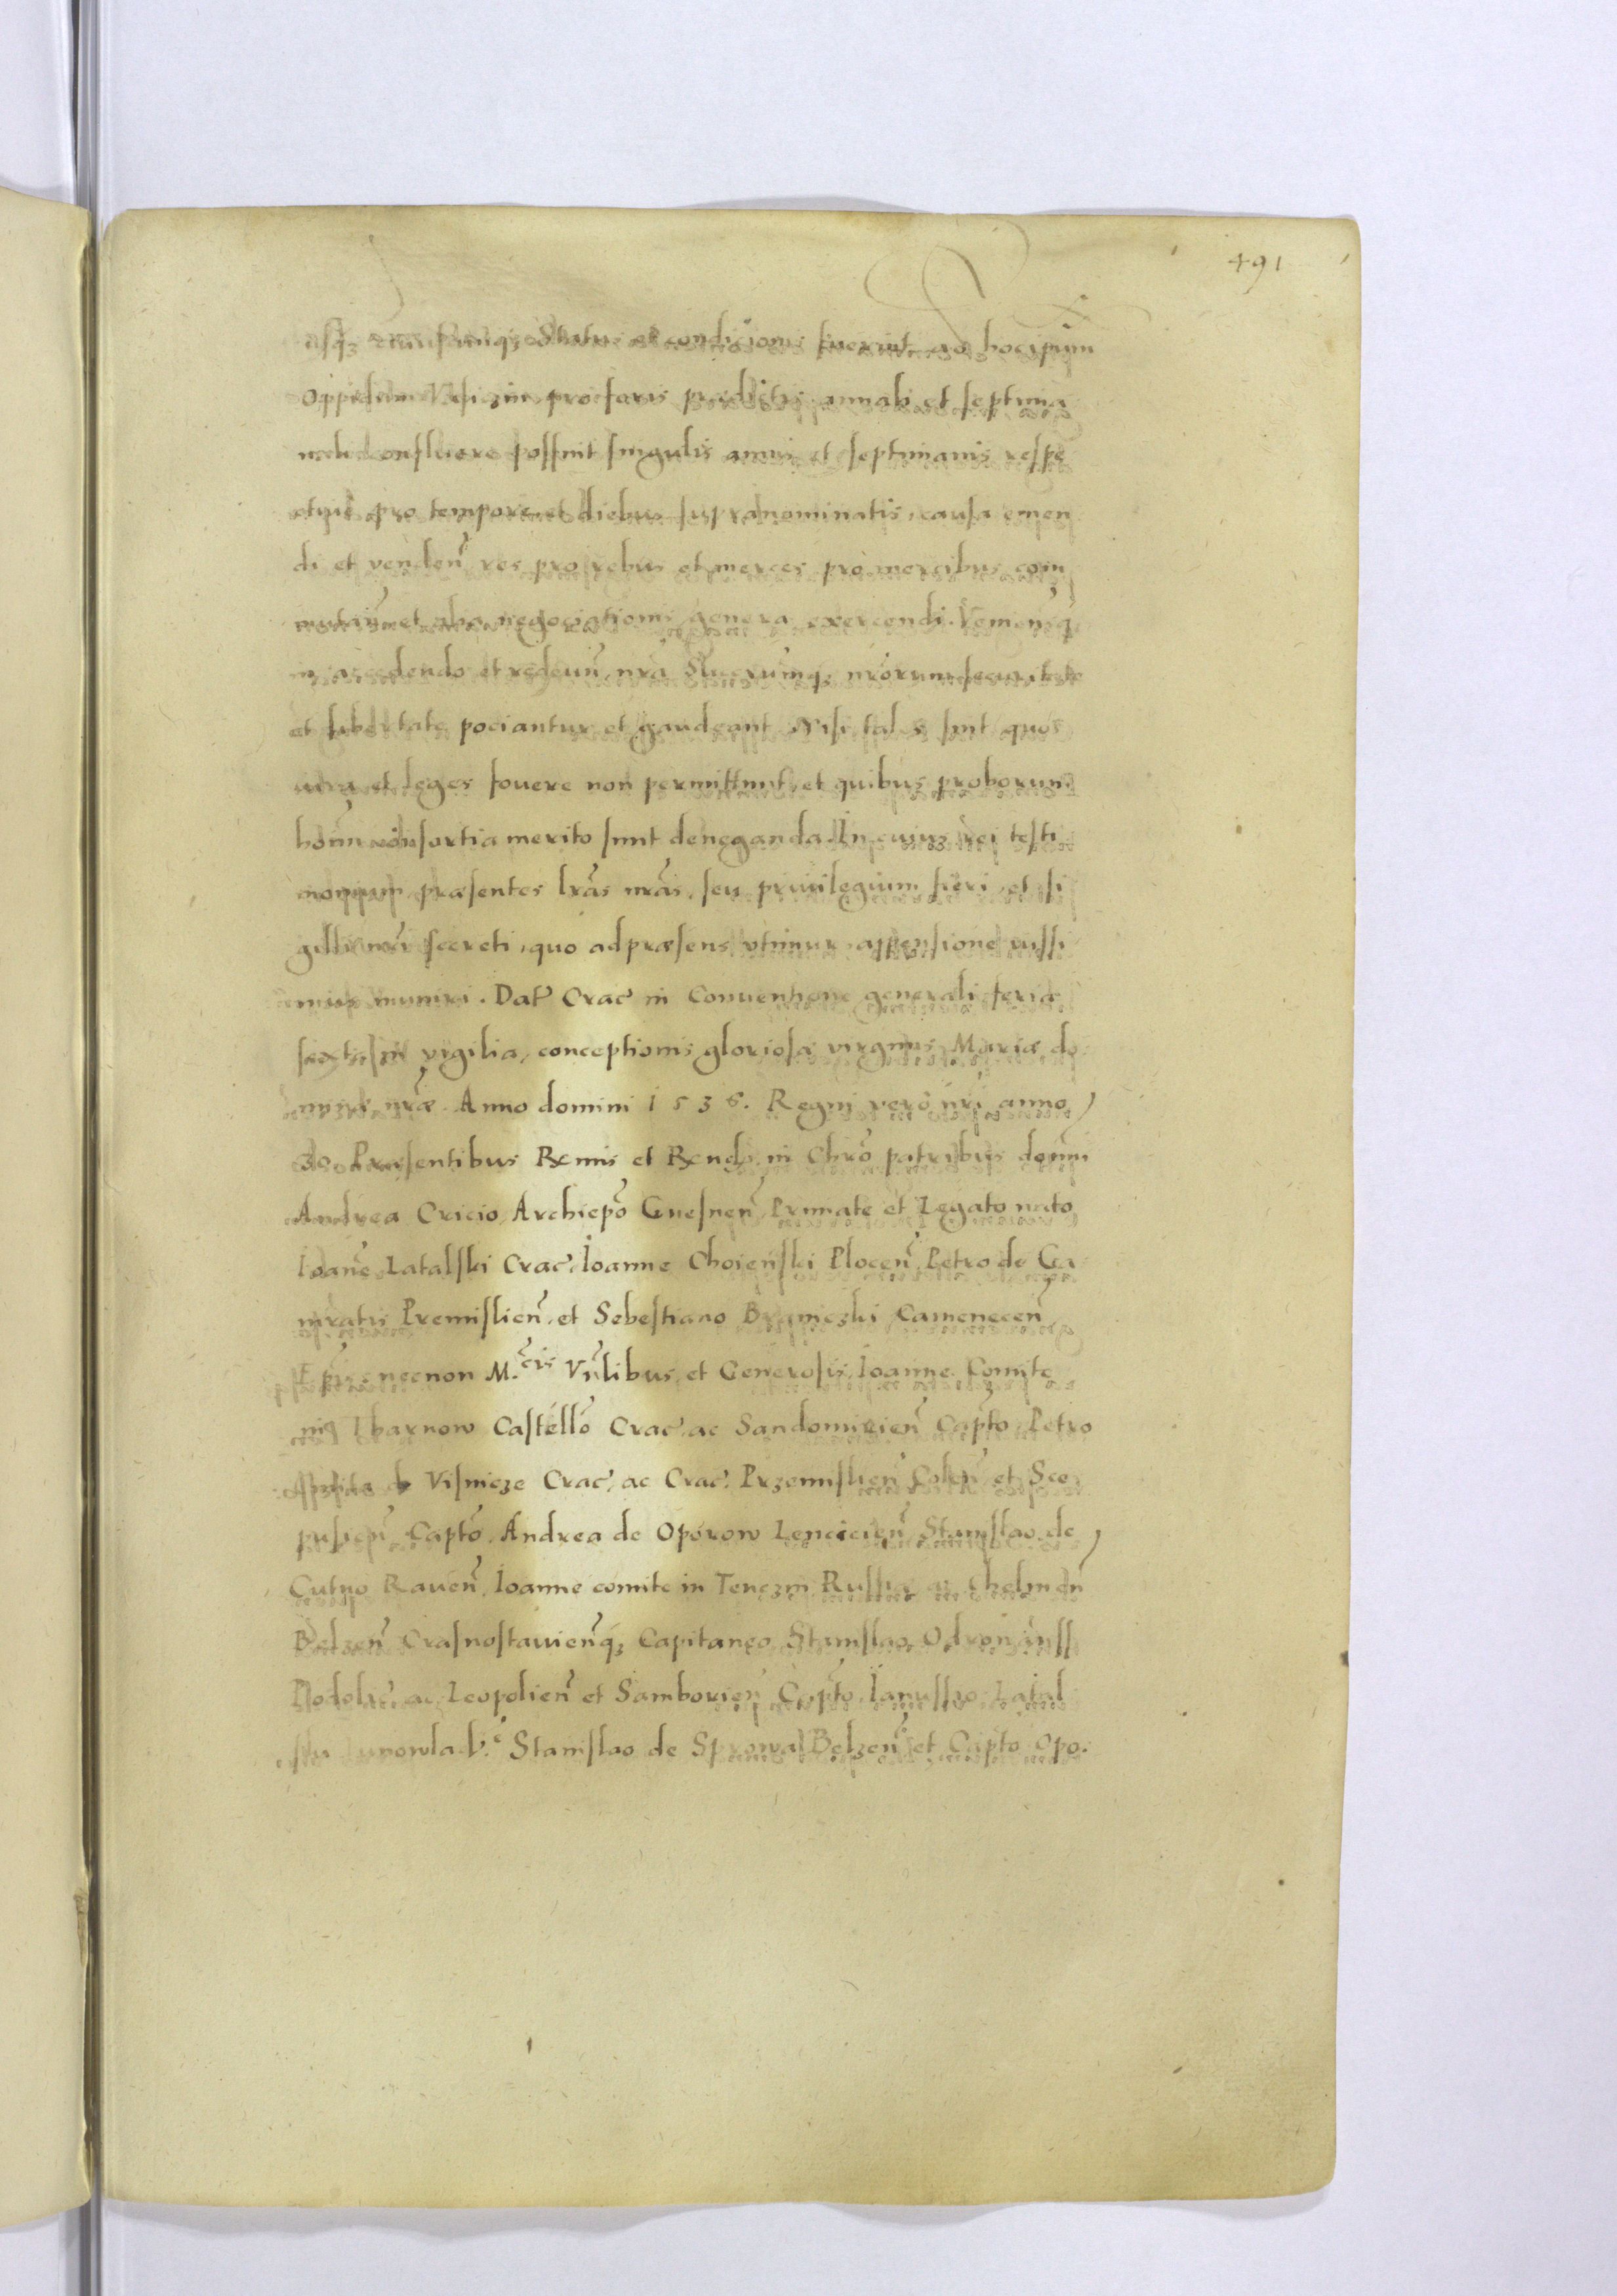 491
usq₃ cuiuscunq₃ Status et condicionis fuerint ad hoc ipsum
Oppidum pro foris prædictis annali et septima
nali confluere possint singulis annis et septimanis respe
ctiue pro tempore et diebus supranominatis, causa emen
di et venden̄ res pro rebus et merces pro mercibus com
mutan̄ et alia negociationis genera exercendi. Veniensq₃
in accedendo et redeun̄ nr̄a Succrumq₃ nr̄orum securitate
et libertate pociantur et gaudeant Nisi tales sint quos
iura et leges fouere non permittunt, et quibus proborum
homi consortia merito sunt deneganda. In cuius rei testi
monium præsentes lr̄as nr̄as, seu priuilegium fieri, et si
gilli nr̄i secreti, quo ad præsens vtimur appensione iussi
mus muniri. Dat̄ Crac̄ in Conuentione generali feria
sexta in vigilia, conceptionis gloriosæ virginis Mariæ do
minæ nr̄æ. Anno domini 1536. Regni vero nr̄i anno
30 Præsentibus Rx̄mis et Rx̄ndis in Chrō patribus domni
Andrea Cricio Archiepō Gnesnen̄ Primate et Legato nato
Ioanē Latalski Crac̄, Ioanne Choienski Plocen̄ Petro de Ga
mratis Premislien̄, et Sebestiano Braniczki Camenecen̄
Ep̄is necnon M.cis Vn̄libus, et Generosis, Ioanne Comite
in Tharnow Castellō Crac̄, ac Sandomirien̄ Capto Petro
de Visnicze Crac̄, ac Crac̄. Przemislien̄ Colen̄ et Sce
pusien̄ Captō. Andrea de Oporow Lencicien̄ Stanislao de
Cutno Raven̄. Ioanne comite in Tenczin Russiæ ac Chelmen̄
Belzen̄ Crasnostauien̄q₃ Capitaneo Stanislao Odrowanss
Podoliæ ac Leopolien̄ et Samborien̄ Captō Ianussio Latal
ski Iunowlad.e Stanislao de Sprowa Belzen̄ et Capto Opo.